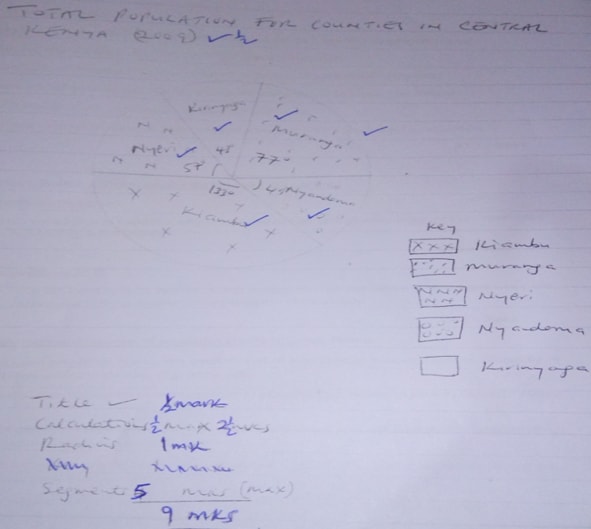 TOTAL POPULATION FOR COUNTIES IN CENTRAL
KENYA (2009) ✓ ½
Kirinyaga
Muranga
Nyeri
48
77°
57
133°
45 Nyandarua
Kiambu
Key
XXX Kiambu
Muranga
NNN NN Nyeri
Nyandarua
Kirinyaga
Title ✓ ½ mark
Calculations ½ max 2½ mks
Radius 1 mk
Segments 5 mks (max)
9 mks